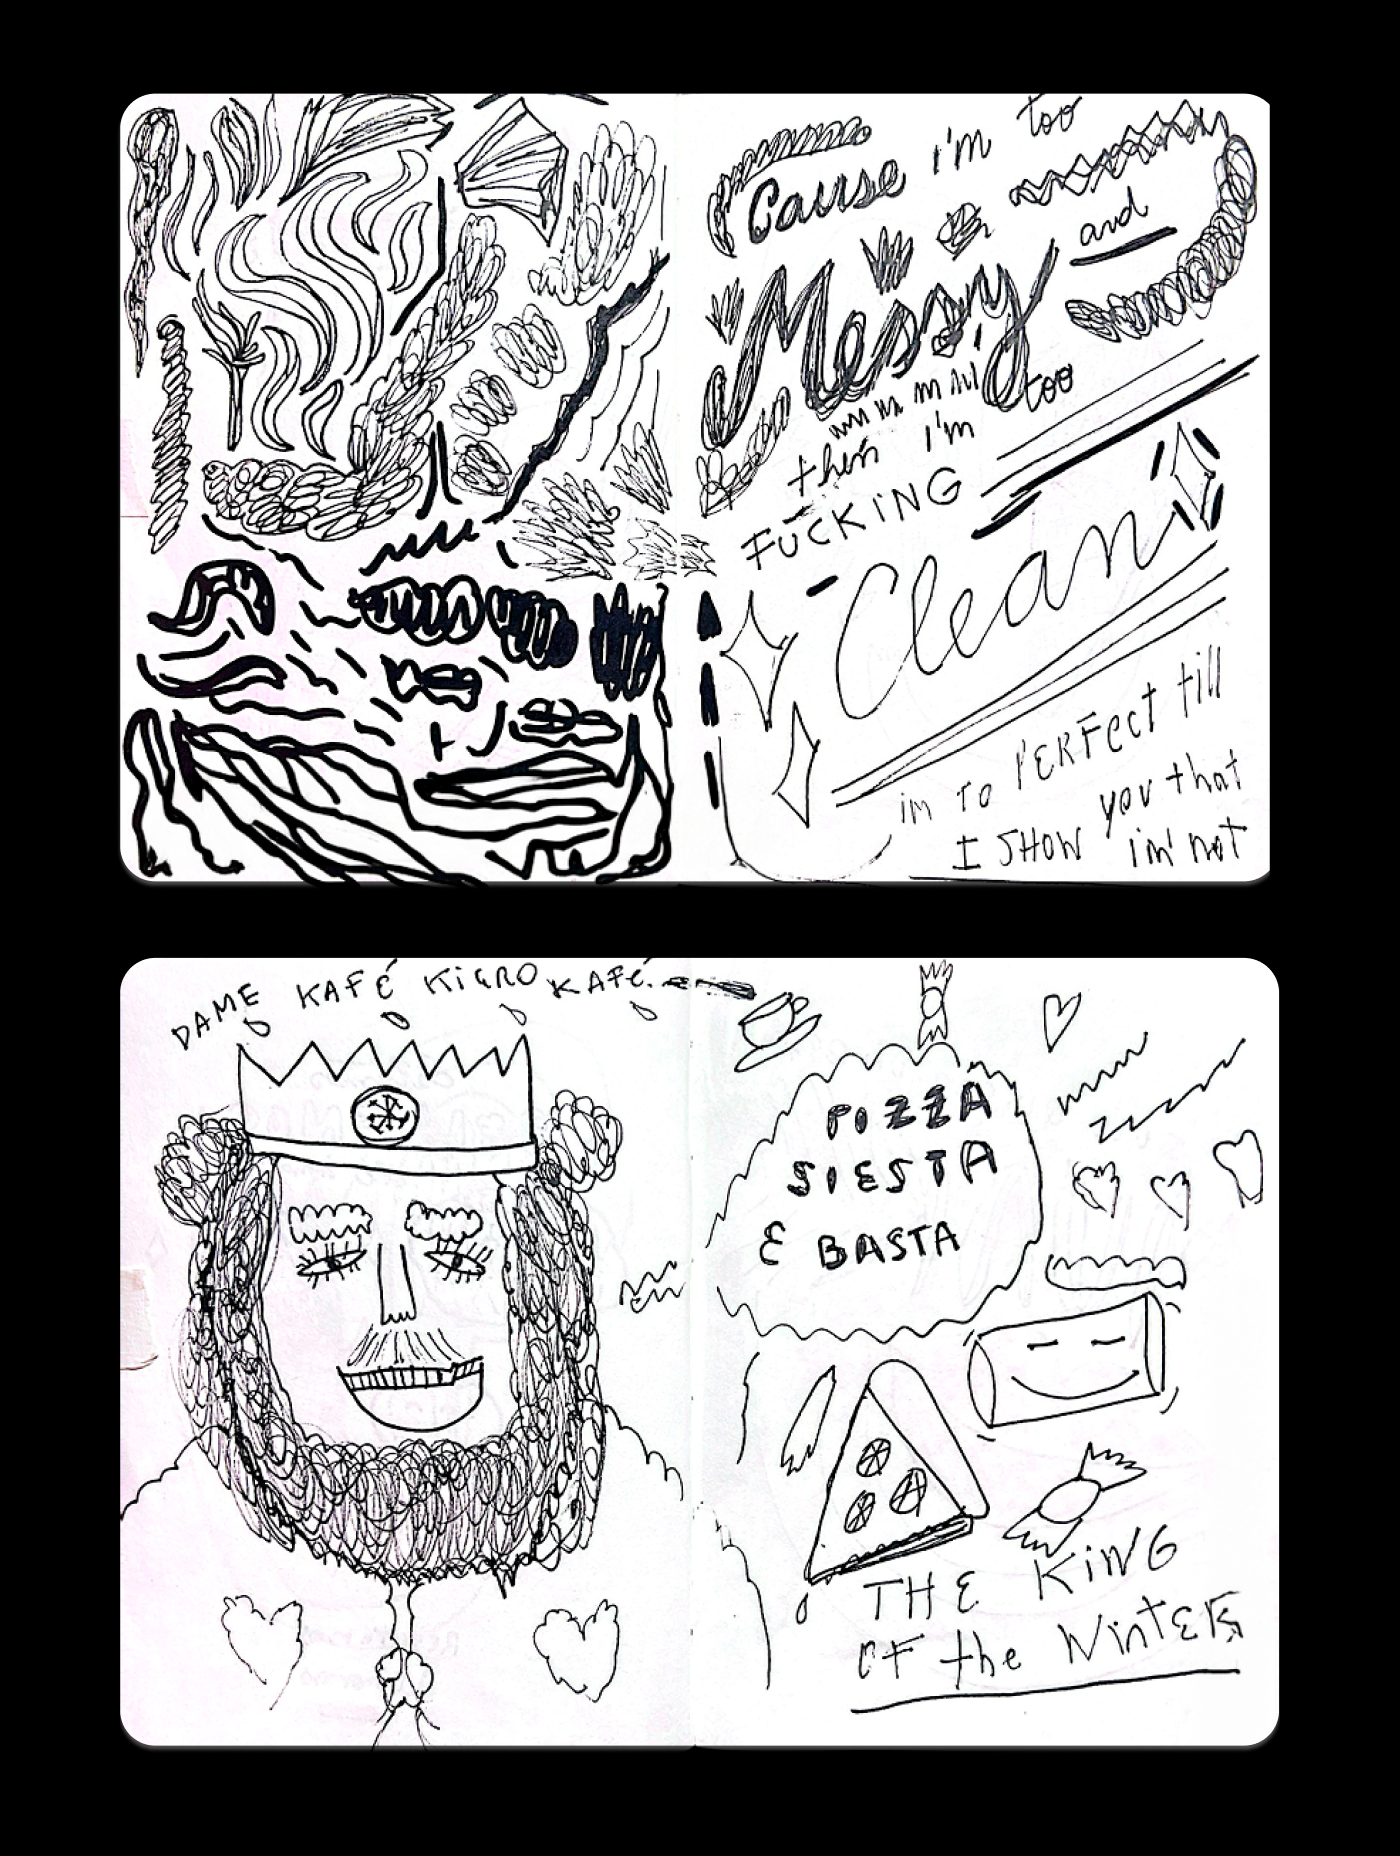 Cause i'm too
Messy and
too
then i'm
FUCKING
Clean
im TO PERFECT till
you that
I SHOW im' not
DAME KAFÉ KIERO KAFÉ.
PIZZA
SIESTA
E BASTA
THE KING
OF the WintER